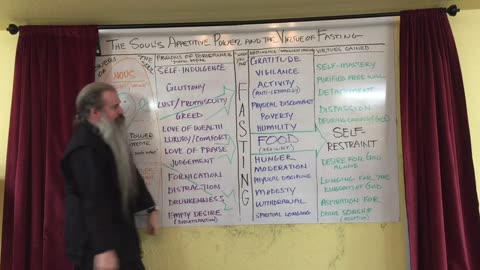 THE SOUL'S APPETITIVE POWER AND THE VIRTUE OF FASTING
NOUS
POWER
SELF-INDULGENCE
GLUTTONY
LUST/PROMISCUITY
GREED
LOVE OF WEALTH
LUXURY/COMFORT
LOVE OF PRAISE
JUDGEMENT
FORNICATION
DISTRACTION
DRUNKENNESS
EMPTY DESIRE
FASTING
GRATITUDE
VIGILANCE
ACTIVITY
(ANTI-LETHARGY)
PHYSICAL DISCOMFORT
POVERTY
HUMILITY
FOOD
HUNGER
MODERATION
PHYSICAL DISCIPLINE
MODESTY
WITHDRAWAL
SPIRITUAL LONGING
VIRTUES GAINED
SELF-MASTERY
PURIFIED FREE WILL
DETACHMENT
DISPASSION
SELF-
RESTRAINT
DESIRE FOR GOD
ALONE
LONGING FOR THE
KINGDOM OF GOD
ASPIRATION FOR
DIVINE SONSHIP